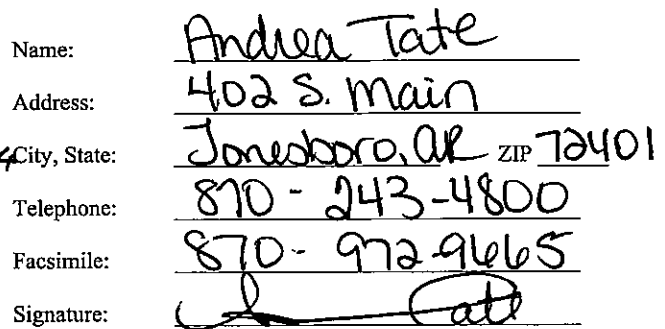 Name: Andrea Tate
Address: 402 S. Main
City, State: Jonesboro, AR ZIP 72401
Telephone: 870-243-4800
Facsimile: 870-972-9665
Signature: Tate